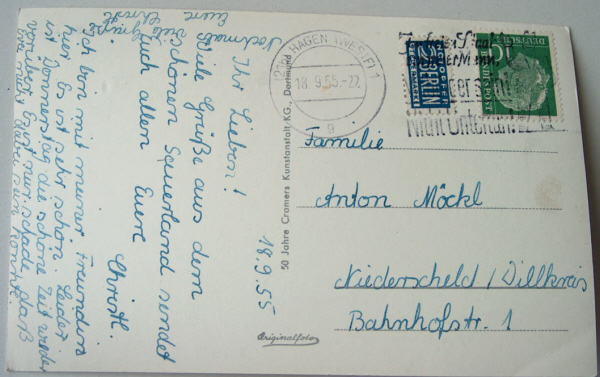 Ihr Lieben!
18.9.55
Viele Grüße aus dem
schönen Sauerland sendet
Euch allen Eure
Christl.
Ich bin mit meiner Freundin
hier. Es ist sehr schön. Leider
ist Donnerstag die schöne Zeit wieder
vorbei. Es ist nur schade, daß
nicht dabei sein könnt.
Nochmals viele
Eure Christl
HAGEN (WESTF) 1
18.9.55-22
g
NOTOPFER
2 BERLIN
STEUERMARKE
DEUTSCHE BUNDESPOST
10
50 Jahre Cramers Kunstanstalt KG., Dortmund
Originalfoto
Familie
Anton Möckl
Niederscheld / Dillkreis
Bahnhofstr. 1